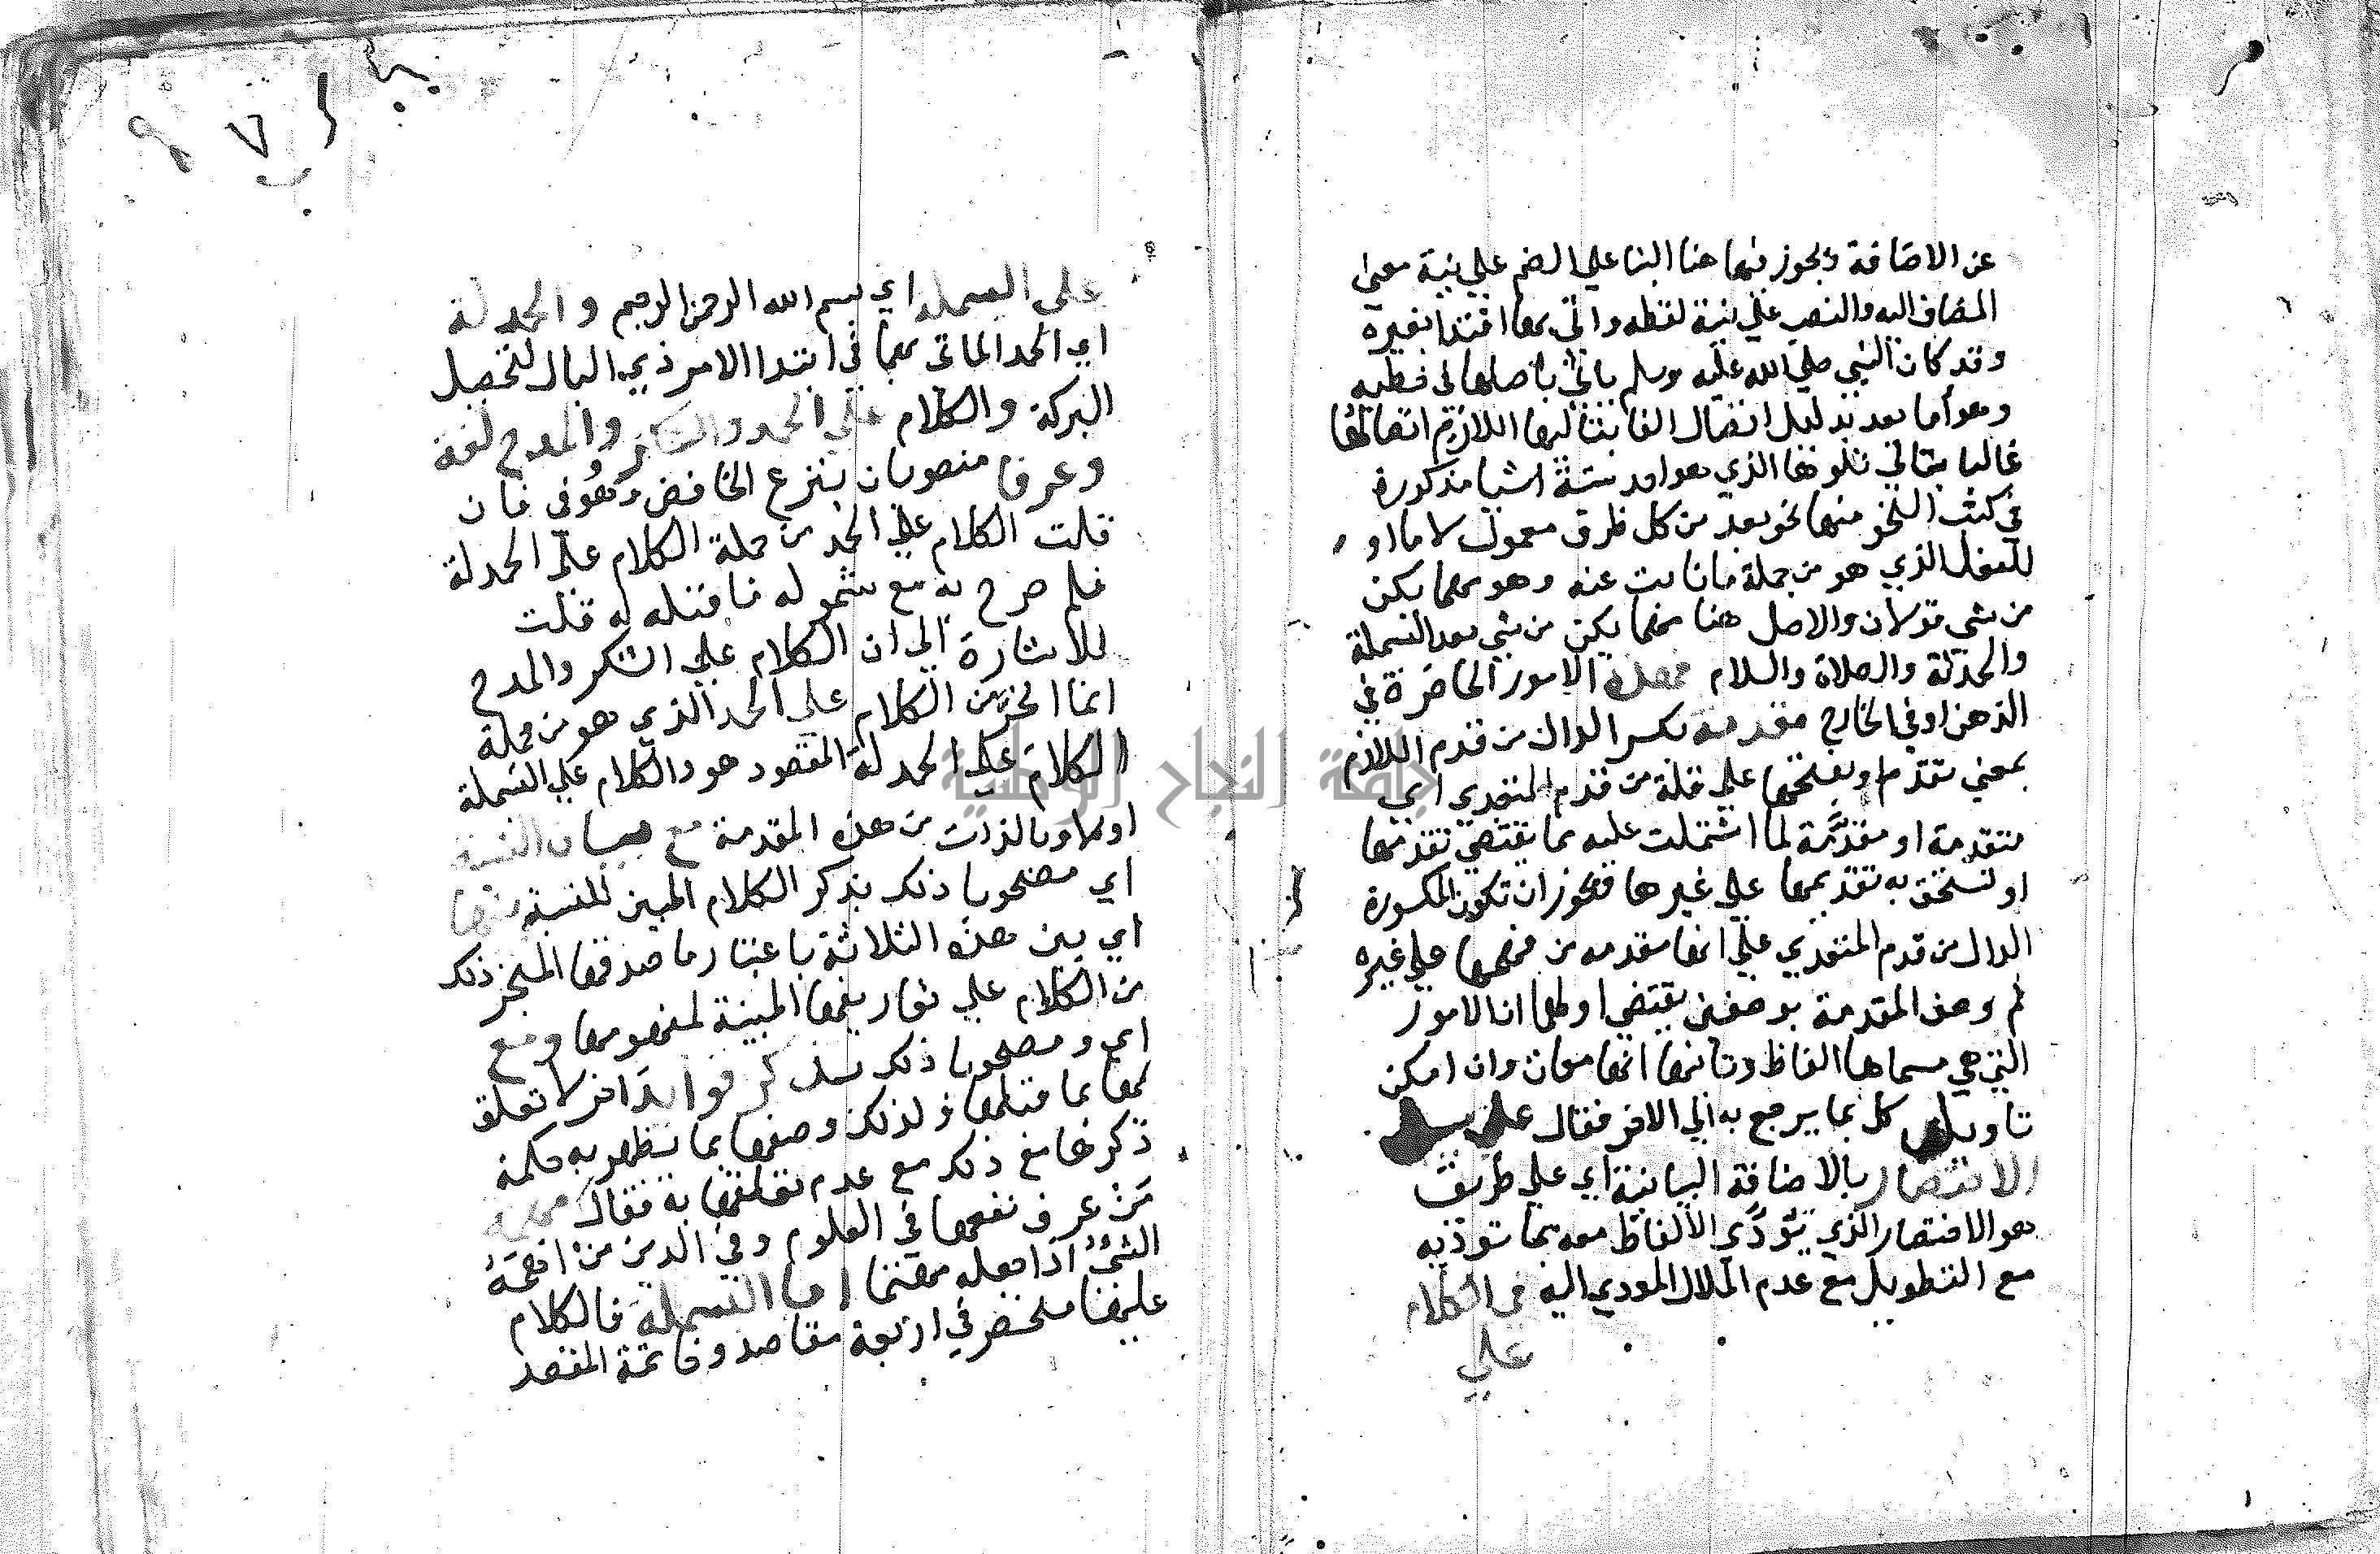 عن الاضافة ويجوز فيها هنا البنا علي الضم علي نية معني
المضاف اليه والنصب علي نية لفظه واتي بها اقتدا بغيره
وقد كان النبي صلي الله عليه وسلم ياتي باصلها في خطبه
وهو أما بعد بدليل
غالبا الذي هو احد ستة اشيا مذكورة
في كتب النحو منها نحو بعد من كل ظرف معمول لاما او
للفعل الذي هو من جملة ما نابت عنه وهو مهما يكن
من شي قولان والاصل هنا مهما يكن من شي بعد البسملة
والحمدلة والصلاة والسلام فهذه الامور الحاضرة في
الذهن او في الخارج مقدمة بكسر الدال من قدم اللازم
بمعني تقدم او بفتحها علي قلة من قدم المتعدي اي
متقدمة او مقدَّمة لما اشتملت عليه مما يقتضي تقدمها
او تستحق به تقديمها علي غيرها ويجوز ان تكون المكسورة
الدال من قدم المتعدي علي انها مقدمه من فهمها علي غيره
ثم وصف المقدمة بوصفين يقتضي اولهما ان الامور
التي هي مسماها الفاظ وثانيهما انها معان وان امكن
تاويل كل بما يرجع به الي الاخر فقال علي سبيل
الاختصار بالاضافة البيانية اي علي طريق
هو الاختصار الذي تؤدَّي الألفاظ معه بما تؤديه
مع التطويل مع عدم الملال المودي اليه في الكلام
علي
علي البسملة اي بسم الله الرحمن الرحيم والحمدلة
اي الحمد الماتي بهما في ابتدا الامر ذي البال لتحصيل
البركة والكلام علي الحمد والشكر والمدح لغة
وعرفا منصوبان بنزع الخافض وهو في فان
قلت الكلام علي الحمد من جملة الكلام علي الحمدلة
فلم صرح به مع شموله له قلت
للاشارة الي ان الكلام علي الشكر والمدح
انما من الكلام علي الحمد الذي هو من جملة
الكلام علي الحمدلة المقصود هو والكلام علي البسملة
اولا وبالذات من هذه المقدمة مع بيان النسبة
اي مصحوبا ذلك بذكر الكلام المبين للنسبة بينها
اي بين هذه الثلاثة باعتبار ما صدقها المنجر ذلك
من الكلام علي تعاريفها المبينة لمفهومها ومع
اي ومصحوبا ذلك بذكر فوايد اخر لا تعلق
لها بما قبلها ولذلك وصفها بما يظهر به حكمة
ذكرها مع ذلك مع عدم تعلقها به فقال
مَنْ عرف نفعها في العلوم وفي الدين من افهمَهُ
الشيءُ اذا جعله اما البسملة فالكلام
عليها منحصر في اربعة مقاصد وخاتمة المقصد